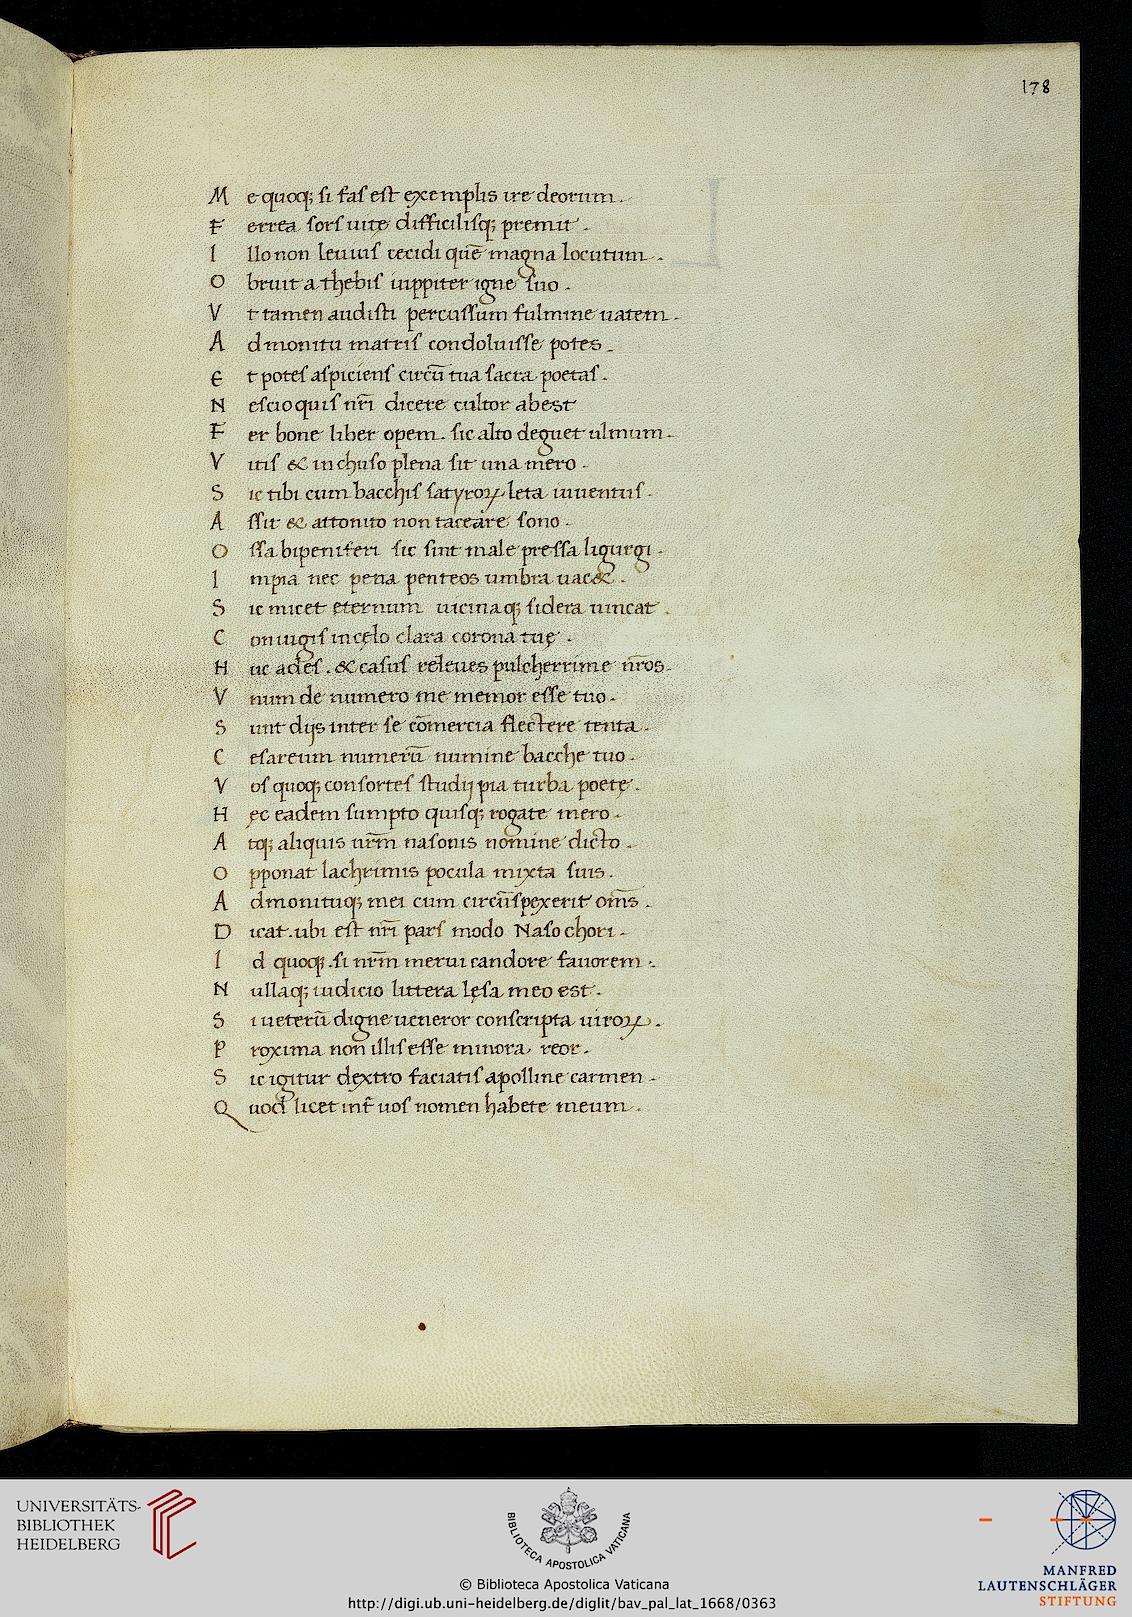 178
M e quoq; si fas est exemplis ire deorum.
F errea sors uitę difficilisq; premit.
I llo non leuius cecidi quē magna locutum.
O bruit a thebis iuppiter igne suo.
V t tamen audisti percussum fulmine uatem.
A dmonitu matris condoluisse potes.
E t potes aspiciens circū tua sacra poetas.
N escio quis nr̄i dicere cultor abest
F er bone liber opem. sic alto deguet ulmum.
V itis & inchuso plena sit una mero.
S ic tibi cum bacchis satyroꝝ leta iuuentus.
A ssit & attonito non taceare sono.
O ssa bipeniferi sic sint male pressa ligurgi.
I mpia nec pena penteos umbra uac&.
S ic micet eternum uicinaq; sidera uincat.
C oniugis in cęlo clara corona tuę.
H uc ades. & casus releues pulcherrime nr̄os.
V num de numero me memor esse tuo.
S unt dijs inter se cōmercia flectere tenta.
C esareum numerū numine bacche tuo.
V os quoq; consortes studij pia turba poetę.
H ęc eadem sumpto quisq; rogate mero.
A tq; aliquis ur̄m nasonis nomine dicto.
O pponat lachrimis pocula mixta suis.
A dmonitusq; mei cum circūspexerit om̄s.
D icat. ubi est nr̄i pars modo Naso chori.
I d quoq;. si nr̄m merui candore fauorem.
N ullaq; iudicio littera lęsa meo est.
S i ueterū digne ueneror conscripta uiroꝝ.
P roxima non illis esse minora reor.
S ic igitur dextro faciatis apolline carmen.
Q uod licet int̄ uos nomen habete meum.
UNIVERSITÄTS-
BIBLIOTHEK
HEIDELBERG
BIBLIOTECA APOSTOLICA VATICANA
© Biblioteca Apostolica Vaticana
http://digi.ub.uni-heidelberg.de/diglit/bav_pal_lat_1668/0363
MANFRED
LAUTENSCHLÄGER
STIFTUNG